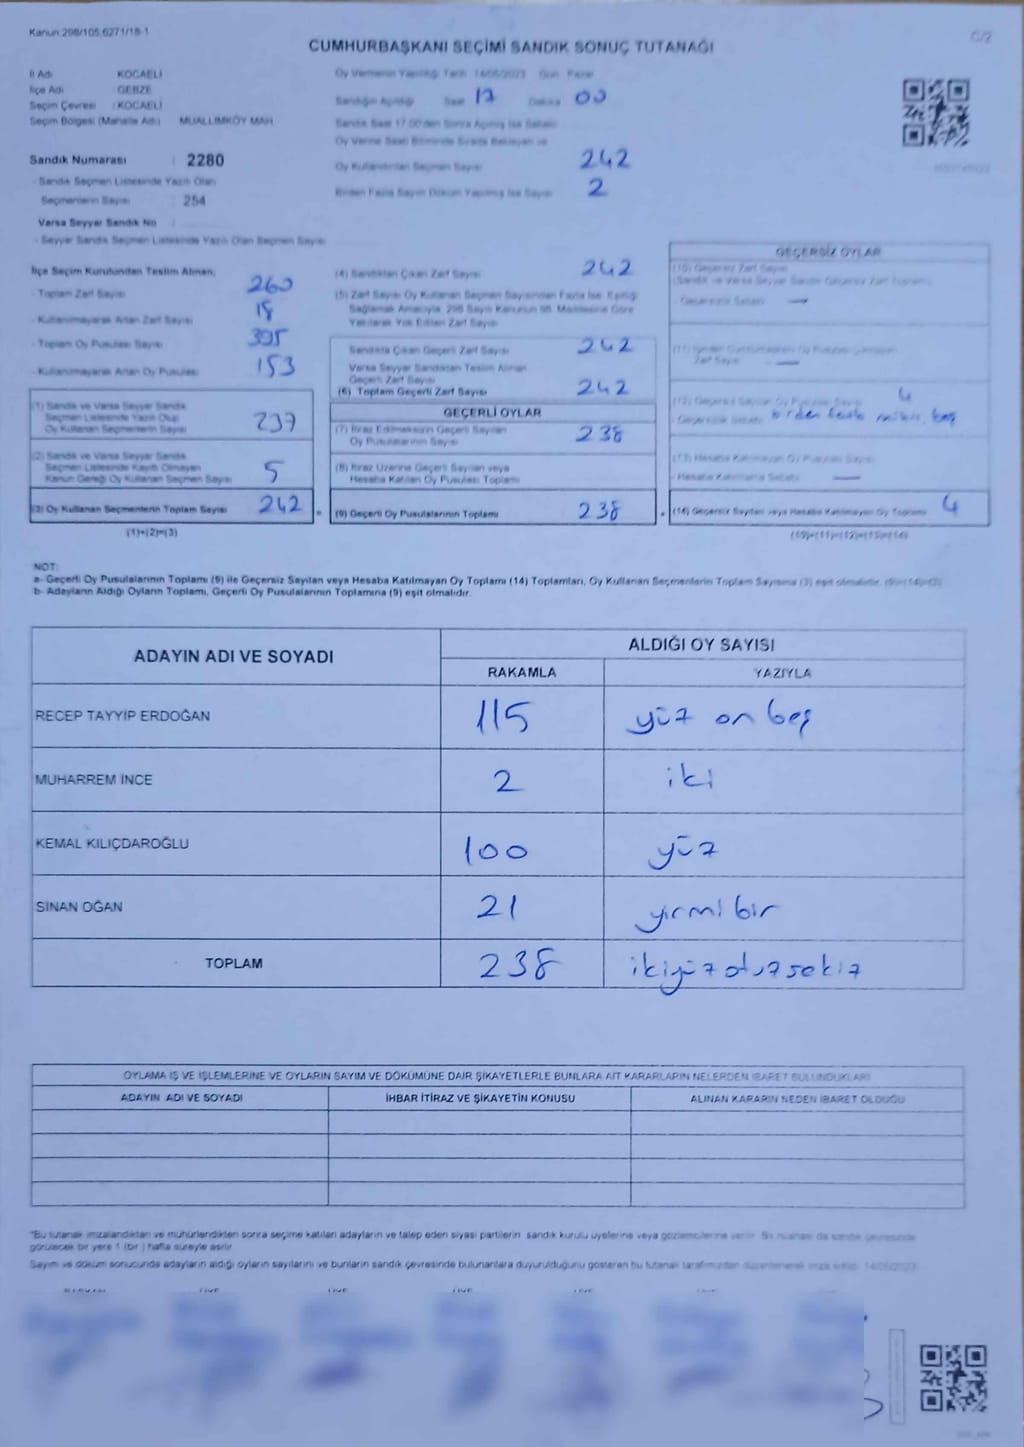 Kanun:298/105,6271/18-1
C/2
CUMHURBAŞKANI SEÇİMİ SANDIK SONUÇ TUTANAĞI
İl Adı KOCAELİ
İlçe Adı GEBZE
Seçim Çevresi : KOCAELİ
Seçim Bölgesi (Mahalle Adı) MUALLİMKÖY MAH.
Sandık Numarası : 2280
- Sandık Seçmen Listesinde Yazılı Olan
Seçmenlerin Sayısı : 254
Varsa Seyyar Sandık No :
- Seyyar Sandık Seçmen Listesinde Yazılı Olan Seçmen Sayısı
Oy Vermenin Yapıldığı Tarih 14/05/2023 Gün Pazar
Sandığın Açıldığı Saat 17 Dakika 00
Sandık Saat 17.00'den Sonra Açılmış İse Sebebi
Oy Verme Saati Bitiminde Sırada Bekleyen ve
Oy Kullandırılan Seçmen Sayısı 242
Birden Fazla Sayım Döküm Yapılmış İse Sayısı 2
İlçe Seçim Kurulundan Teslim Alınan;
- Toplam Zarf Sayısı 260
- Kullanılmayarak Artan Zarf Sayısı 18
- Toplam Oy Pusulası Sayısı 395
- Kullanılmayarak Artan Oy Pusulası 153
(1) Sandık ve Varsa Seyyar Sandık
Seçmen Listesinde Yazılı Olup
Oy Kullanan Seçmenlerin Sayısı 237
(2) Sandık ve Varsa Seyyar Sandık
Seçmen Listesinde Kayıtlı Olmayan
Kanun Gereği Oy Kullanan Seçmen Sayısı 5
(3) Oy Kullanan Seçmenlerin Toplam Sayısı 242
(1)+(2)=(3)
(4) Sandıktan Çıkan Zarf Sayısı 242
(5) Zarf Sayısı Oy Kullanan Seçmen Sayısından Fazla İse, Eşitliği
Sağlamak Amacıyla, 298 Sayılı Kanunun 98. Maddesine Göre
Yakılarak Yok Edilen Zarf Sayısı
Sandıkta Çıkan Geçerli Zarf Sayısı 242
Varsa Seyyar Sandıktan Teslim Alınan
Geçerli Zarf Sayısı
(6) Toplam Geçerli Zarf Sayısı 242
GEÇERLİ OYLAR
(7) İtiraz Edilmeksizin Geçerli Sayılan
Oy Pusulalarının Sayısı 238
(8) İtiraz Üzerine Geçerli Sayılan veya
Hesaba Katılan Oy Pusulası Toplamı
(9) Geçerli Oy Pusulalarının Toplamı 238
GEÇERSİZ OYLAR
(10) Geçersiz Zarf Sayısı
(Sandık ve Varsa Seyyar Sandık Geçersiz Zarf Toplamı)
- Geçersizlik Sebebi
Zarf Sayısı
4
- Geçersizlik Sebebi birden fazla
(13) Hesaba Katılmayan Oy Pusulası Sayısı
- Hesaba Katılmama Sebebi
(14) Geçersiz Sayılan veya Hesaba Katılmayan Oy Toplamı 4
(10)+(11)+(12)+(13)=(14)
NOT:
a- Geçerli Oy Pusulalarının Toplamı (9) ile Geçersiz Sayılan veya Hesaba Katılmayan Oy Toplamı (14) Toplamları, Oy Kullanan Seçmenlerin Toplam Sayısına (3) eşit olmalıdır. (9)+(14)=(3)
b- Adayların Aldığı Oyların Toplamı, Geçerli Oy Pusulalarının Toplamına (9) eşit olmalıdır.
ADAYIN ADI VE SOYADI ALDIĞI OY SAYISI
RAKAMLA YAZIYLA
RECEP TAYYİP ERDOĞAN 115 yüz on beş
MUHARREM İNCE 2 iki
KEMAL KILIÇDAROĞLU 100 yüz
SİNAN OĞAN 21 yirmi bir
TOPLAM 238 ikiyüz otuz sekiz
OYLAMA İŞ VE İŞLEMLERİNE VE OYLARIN SAYIM VE DÖKÜMÜNE DAİR ŞİKAYETLERLE BUNLARA AİT KARARLARIN NELERDEN İBARET BULUNDUKLARI
ADAYIN ADI VE SOYADI İHBAR İTİRAZ VE ŞİKAYETİN KONUSU ALINAN KARARIN NEDEN İBARET OLDUĞU
"Bu tutanak imzalandıktan ve mühürlendikten sonra seçime katılan adayların ve talep eden siyasi partilerin sandık kurulu üyelerine veya gözlemcilerine verilir. Bir nushası da sandık çevresinde
görülecek bir yere 1 (bir ) hafta süreyle asılır.
Sayım ve döküm sonucunda adayların aldığı oyların sayılarını ve bunların sandık çevresinde bulunanlara duyurulduğunu gösteren bu tutanak tarafımızdan düzenlenerek imza edildi. 14/05/2023